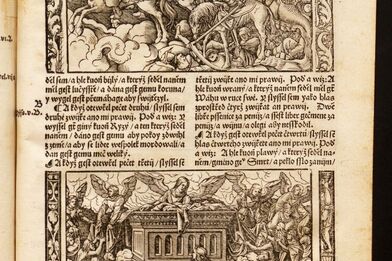 děl sem / a hle kuoň bielý / a kterýž seděl na něm
měl gest lučisstě / a dána gest gemu koruna /
y wyšel gest přemáhagě aby swítězyl.
A když otewřel pečet druhú / slyssel sem
druhé zwijře ano mi prawij. Poď a wiz: A
wyssel giný kuoň Ryzý / a ten kterýž seděl na
něm / dáno gest gemu aby pokoy zdwihl
z země / aby se lidé wespolek mordowali / a
dán gest gemu meč weliký.
A když otewřel pečet třetij / slyssel s
třetij zwijře ano mi prawij. Poď a wiz: A
hle kuoň wraný / a kterýž seděl na něm měl gest
Wáhu w ruce swé. Y slyssel sem yako hlas
vprostřed čtyř zwijřat an prawij. Dwě
libře pssenice za peniz / a ssest liber gečmene za
peniz / a wijnu / a oleji aby nesskodil.
A když otewřel pečet čtwrtú / slyssel s
hlas čtwrtého zwijřete ano mi prawij. Poď a
wiz: A hle kuoň plawý / a kterýž seděl na
něm / gméno geº Smrt / a peklo sslo za nijm /
B